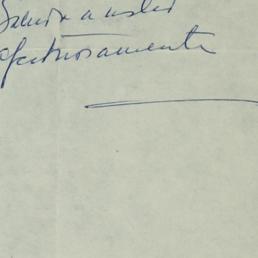 Saluda a usted
afectuosamente